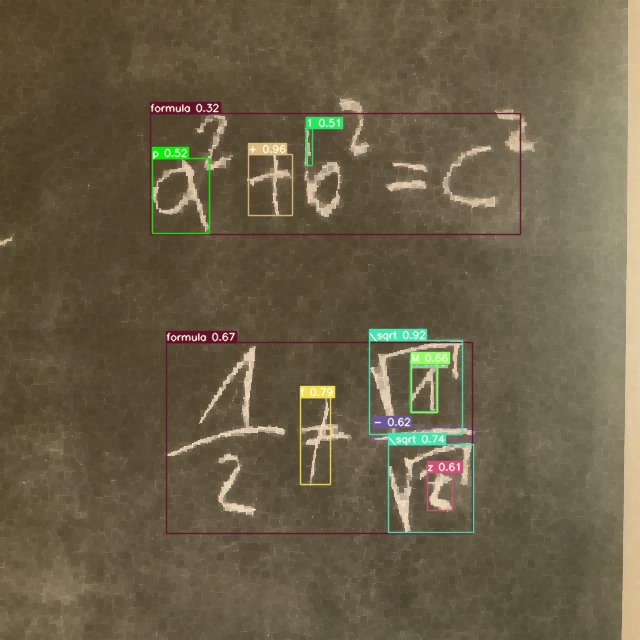 formula 0.32
p 0.52
+ 0.96
1 0.51
a² + b² = c²
formula 0.67
\sqrt 0.92
M 0.66
f 0.79
− 0.62
\sqrt 0.74
z 0.61
1/2 + √1/√2